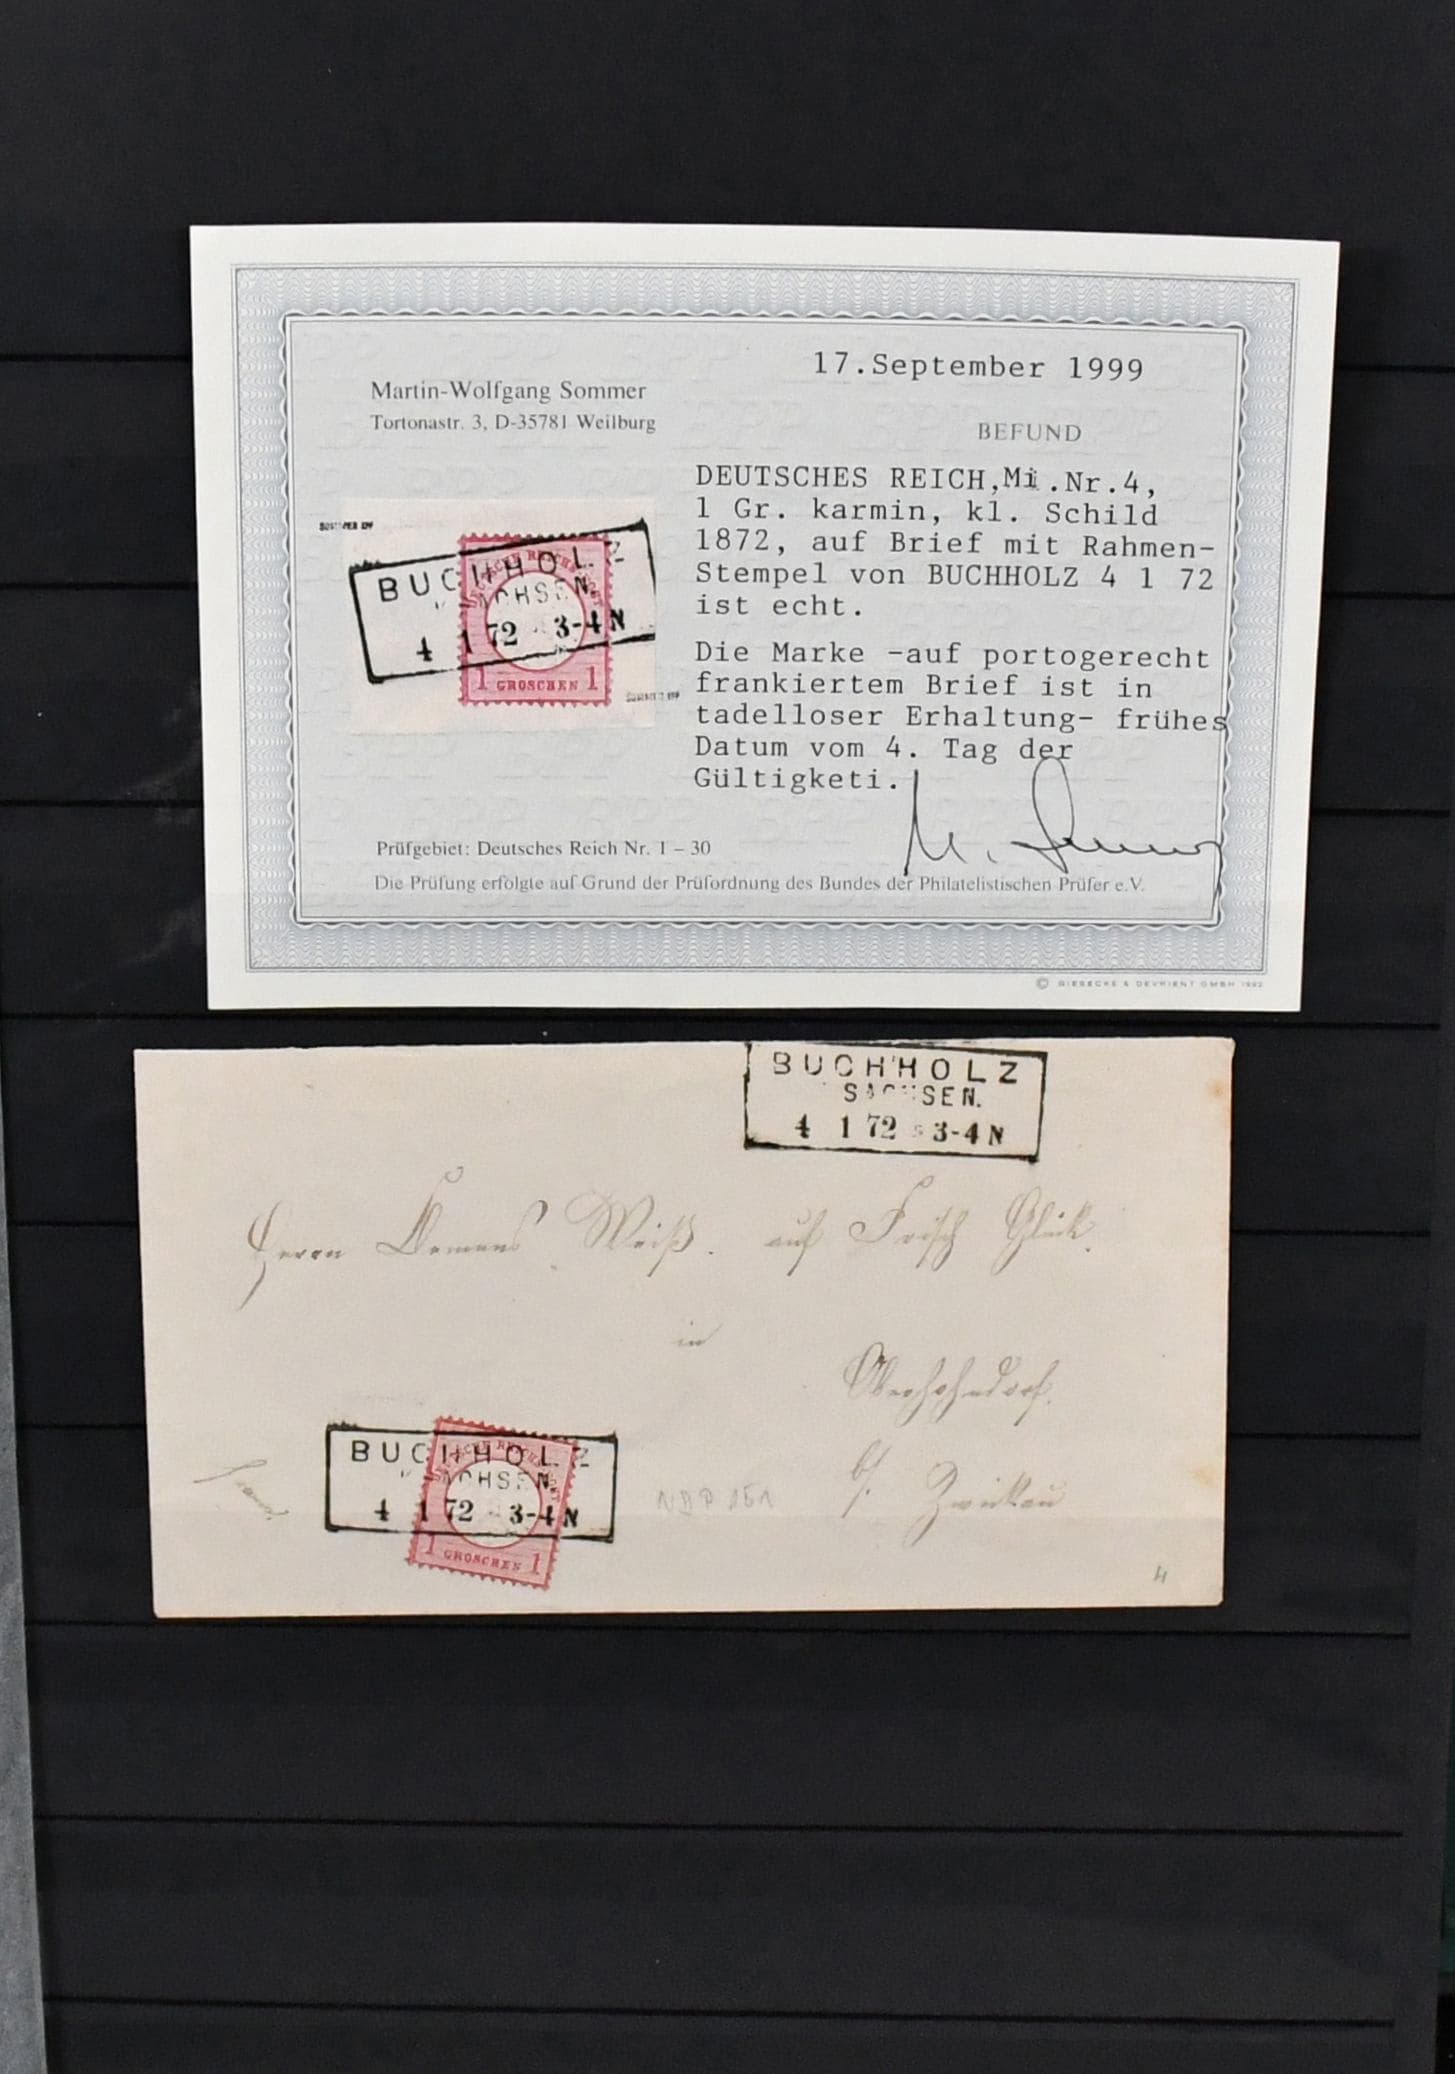 17.September 1999
Martin-Wolfgang Sommer
Tortonastr. 3, D-35781 Weilburg
BEFUND
DEUTSCHES REICH,Mi.Nr.4,
1 Gr. karmin, kl. Schild
1872, auf Brief mit Rahmen-
Stempel von BUCHHOLZ 4 1 72
ist echt.
Die Marke -auf portogerecht
frankiertem Brief ist in
tadelloser Erhaltung- frühes
Datum vom 4. Tag der
Gültigketi.
SOMMER BPP
BUCHHOLZ
SACHSEN.
4 1 72 3-4 N
1 GROSCHEN 1
SOMMER BPP
Prüfgebiet: Deutsches Reich Nr. 1 – 30
Die Prüfung erfolgte auf Grund der Prüfordnung des Bundes der Philatelistischen Prüfer e.V.
© GIESECKE & DEVRIENT GMBH 1992
BUCHHOLZ
SACHSEN.
4 1 72 3-4 N
Herrn Clemens Weiß. auf Frisch Glück.
in
Oberhohndorf.
b/. Zwickau
BUCHHOLZ
SACHSEN.
4 1 72 3-4 N
1 GROSCHEN 1
4